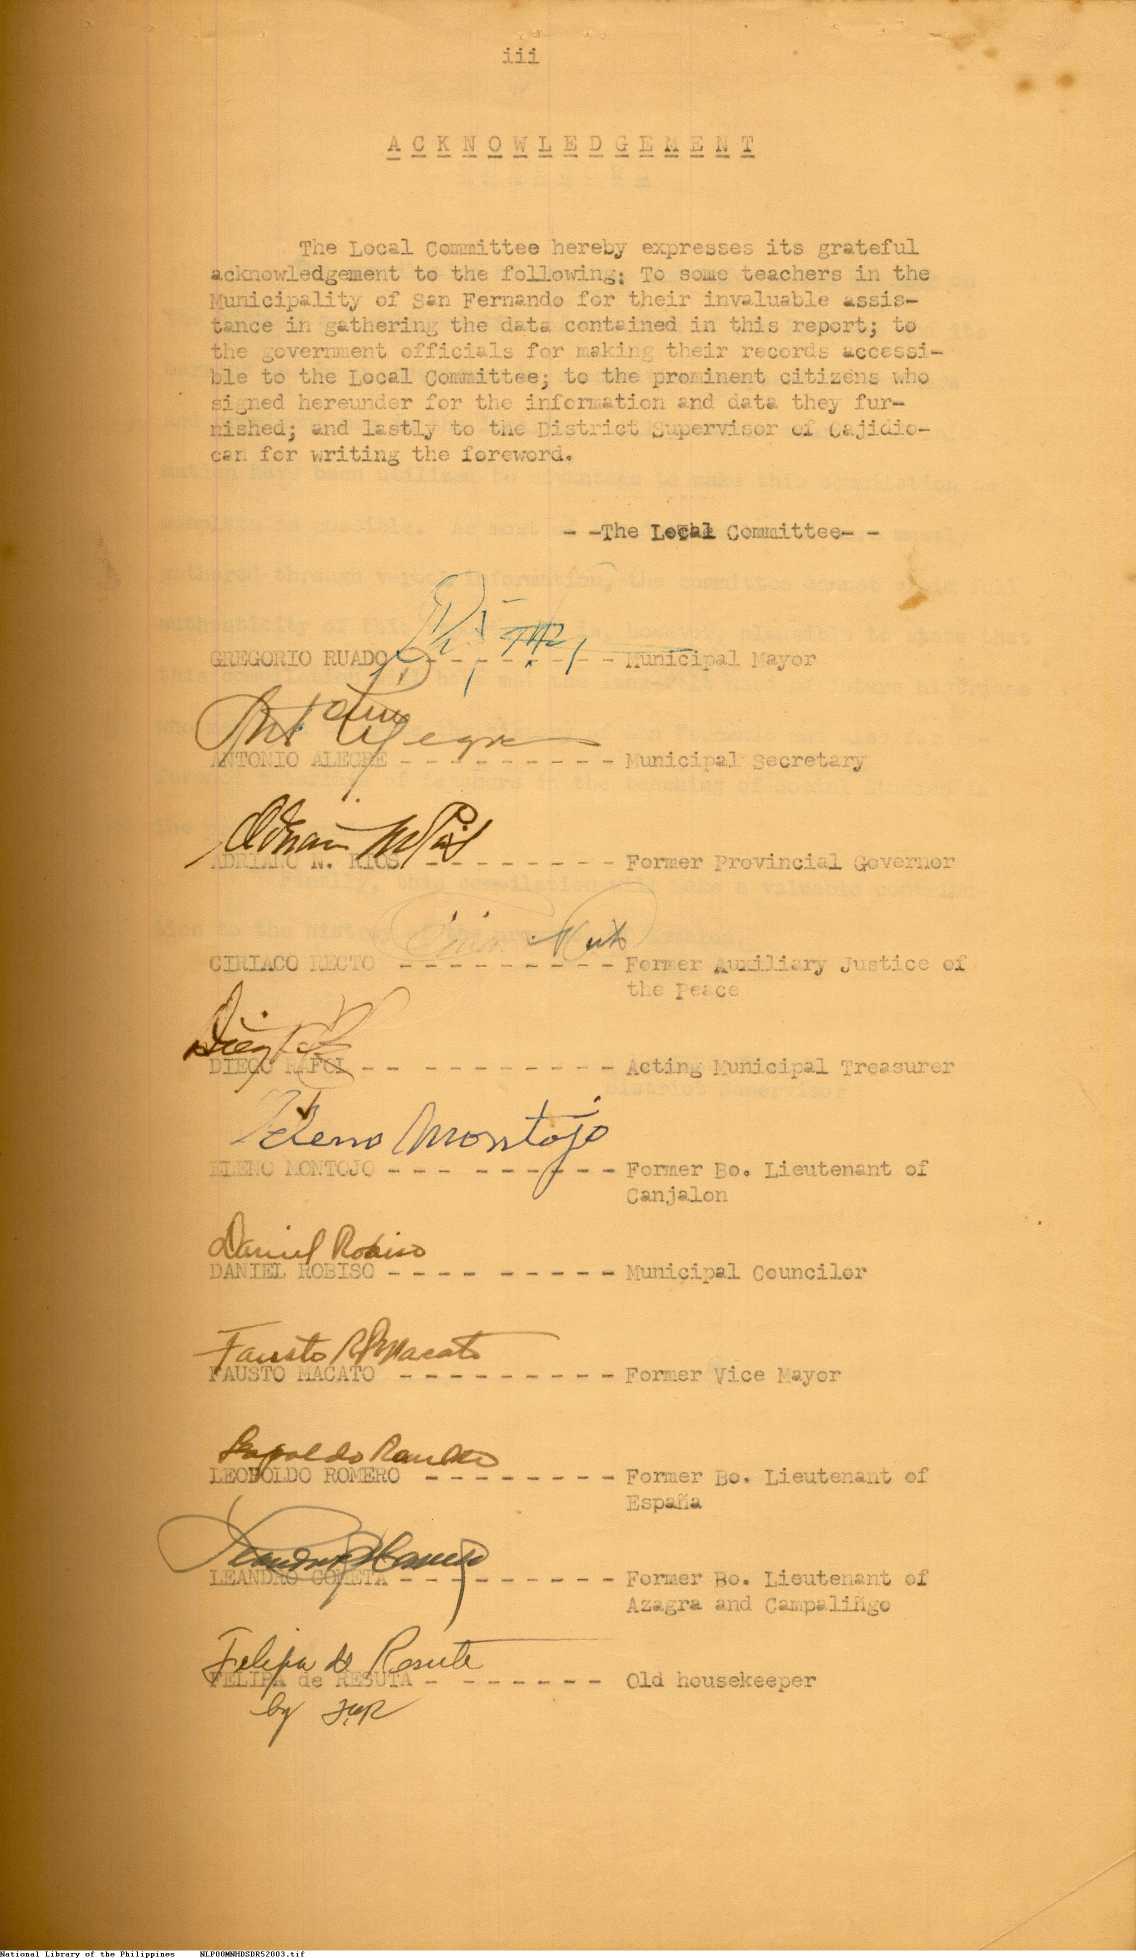 iii
ACKNOWLEDGEMENT
The Local Committee hereby expresses its grateful
acknowledgement to the following: To some teachers in the
Municipality of San Fernando for their invaluable assis-
tance in gathering the data contained in this report; to
the government officials for making their records accessi-
ble to the Local Committee; to the prominent citizens who
signed hereunder for the information and data they fur-
nished; and lastly to the District Supervisor of Cajidio-
can for writing the foreword.
- -The Local Committee- -
GREGORIO RUADO - - - - - - - - - Municipal Mayor
ANTONIO ALEGRE - - - - - - - - - Municipal Secretary
ADRIANO N. RIOS - - - - - - - - Former Provincial Governor
CIRIACO RECTO - - - - - - - - - Former Auxiliary Justice of
the Peace
DIEGO - - - - - - - - - Acting Municipal Treasurer
Eleno Montojo
ELENO MONTOJO - - - - - - - - - Former Bo. Lieutenant of
Canjalon
Daniel Robiso
DANIEL ROBISO - - - - - - - - - Municipal Councilor
Fausto Macato
FAUSTO MACATO - - - - - - - - - Former Vice Mayor
Leopoldo
LEOPOLDO ROMERO - - - - - - - - Former Bo. Lieutenant of
España
LEANDRO COMETA - - - - - - - - - Former Bo. Lieutenant of
Azagra and Campaliñgo
Felipa de Resuta
FELIPA de RESUTA - - - - - - - Old housekeeper
by
National Library of the Philippines NLPOOMNHDSDR52003.tif